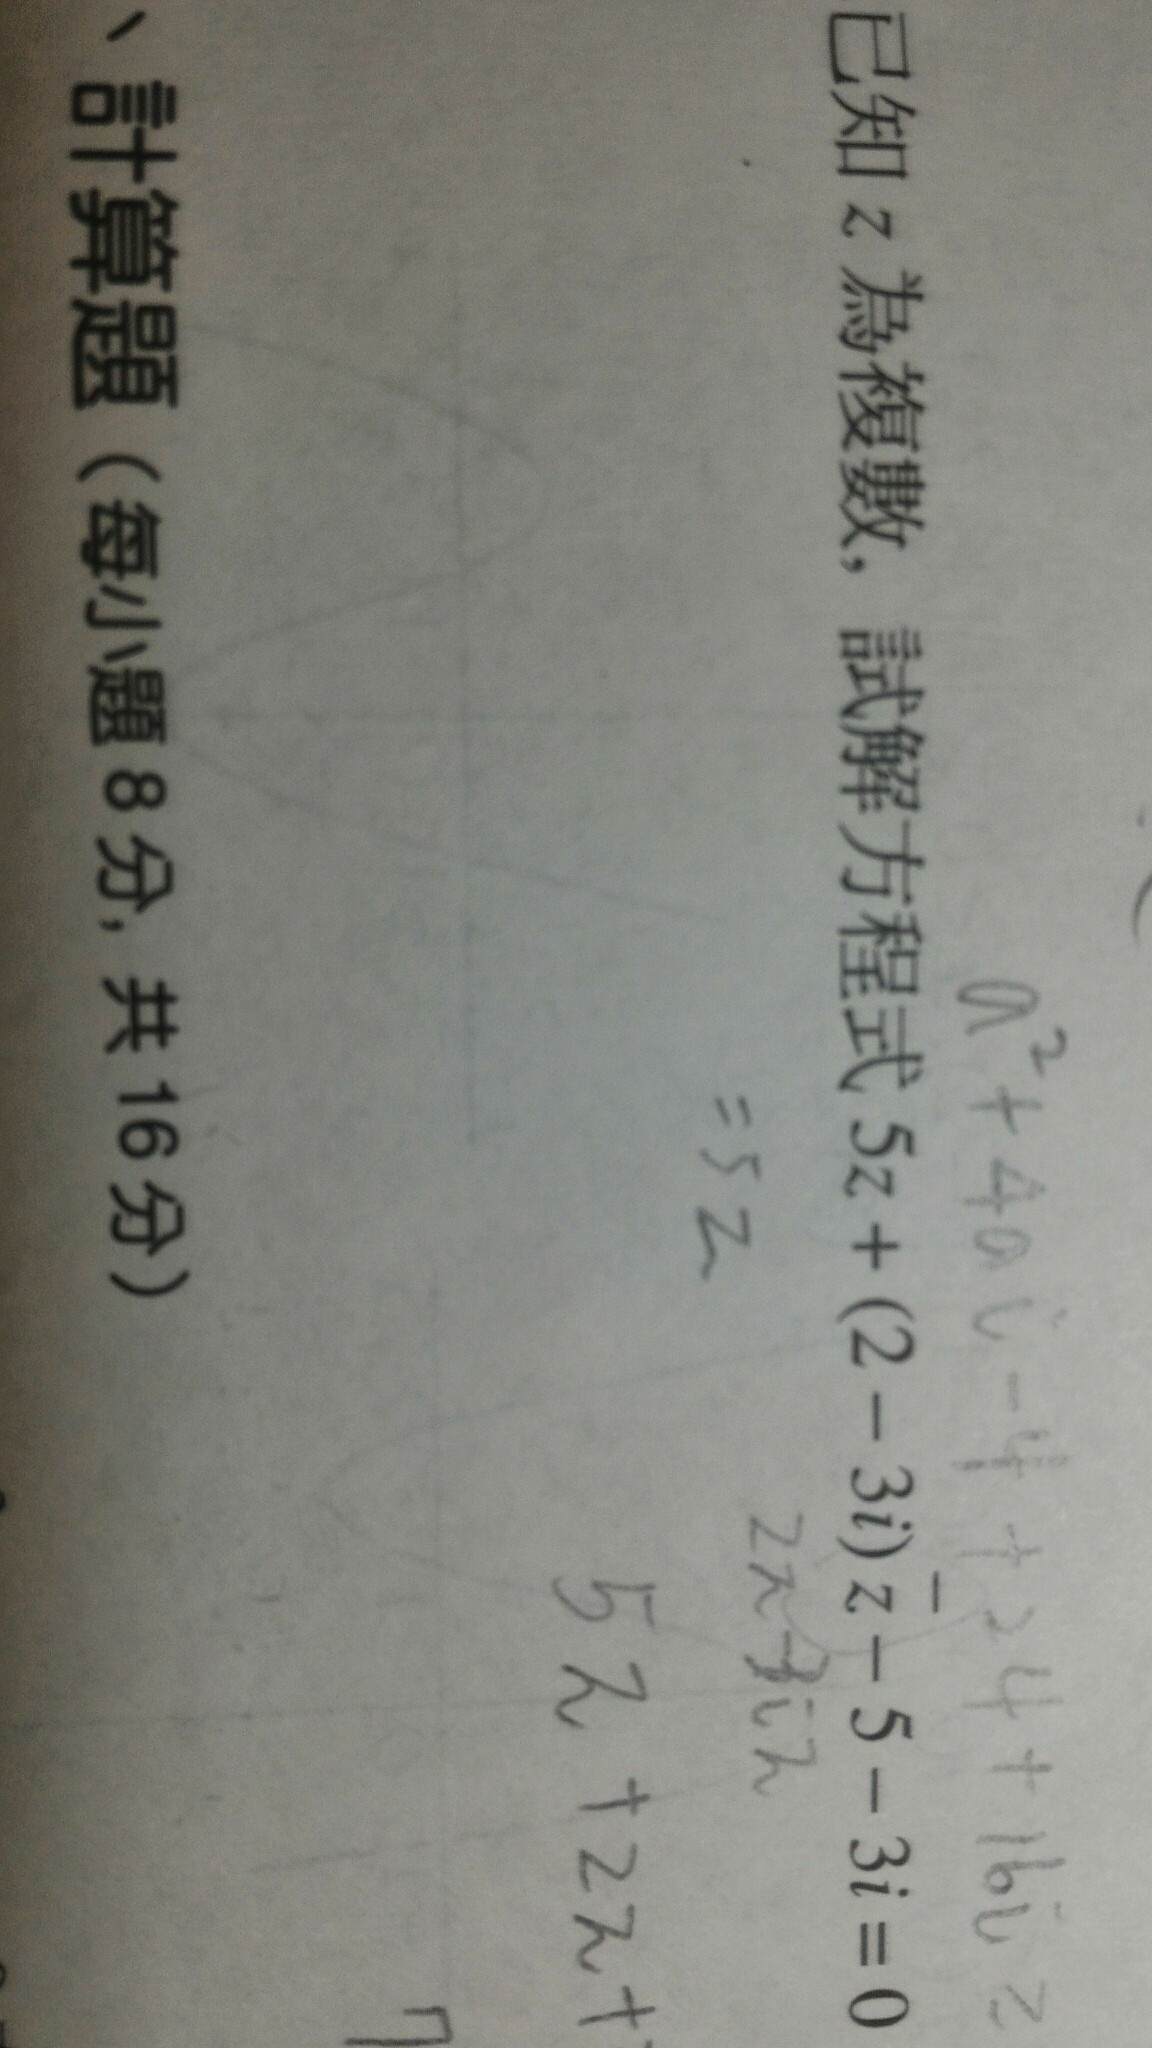 a²+4ai-4+24+16i=
已知 z 為複數，試解方程式 5z + (2 − 3i) z̄ − 5 − 3i = 0
2z-3iz
=5z
5z+2z+
、計算題（每小題 8 分，共 16 分）